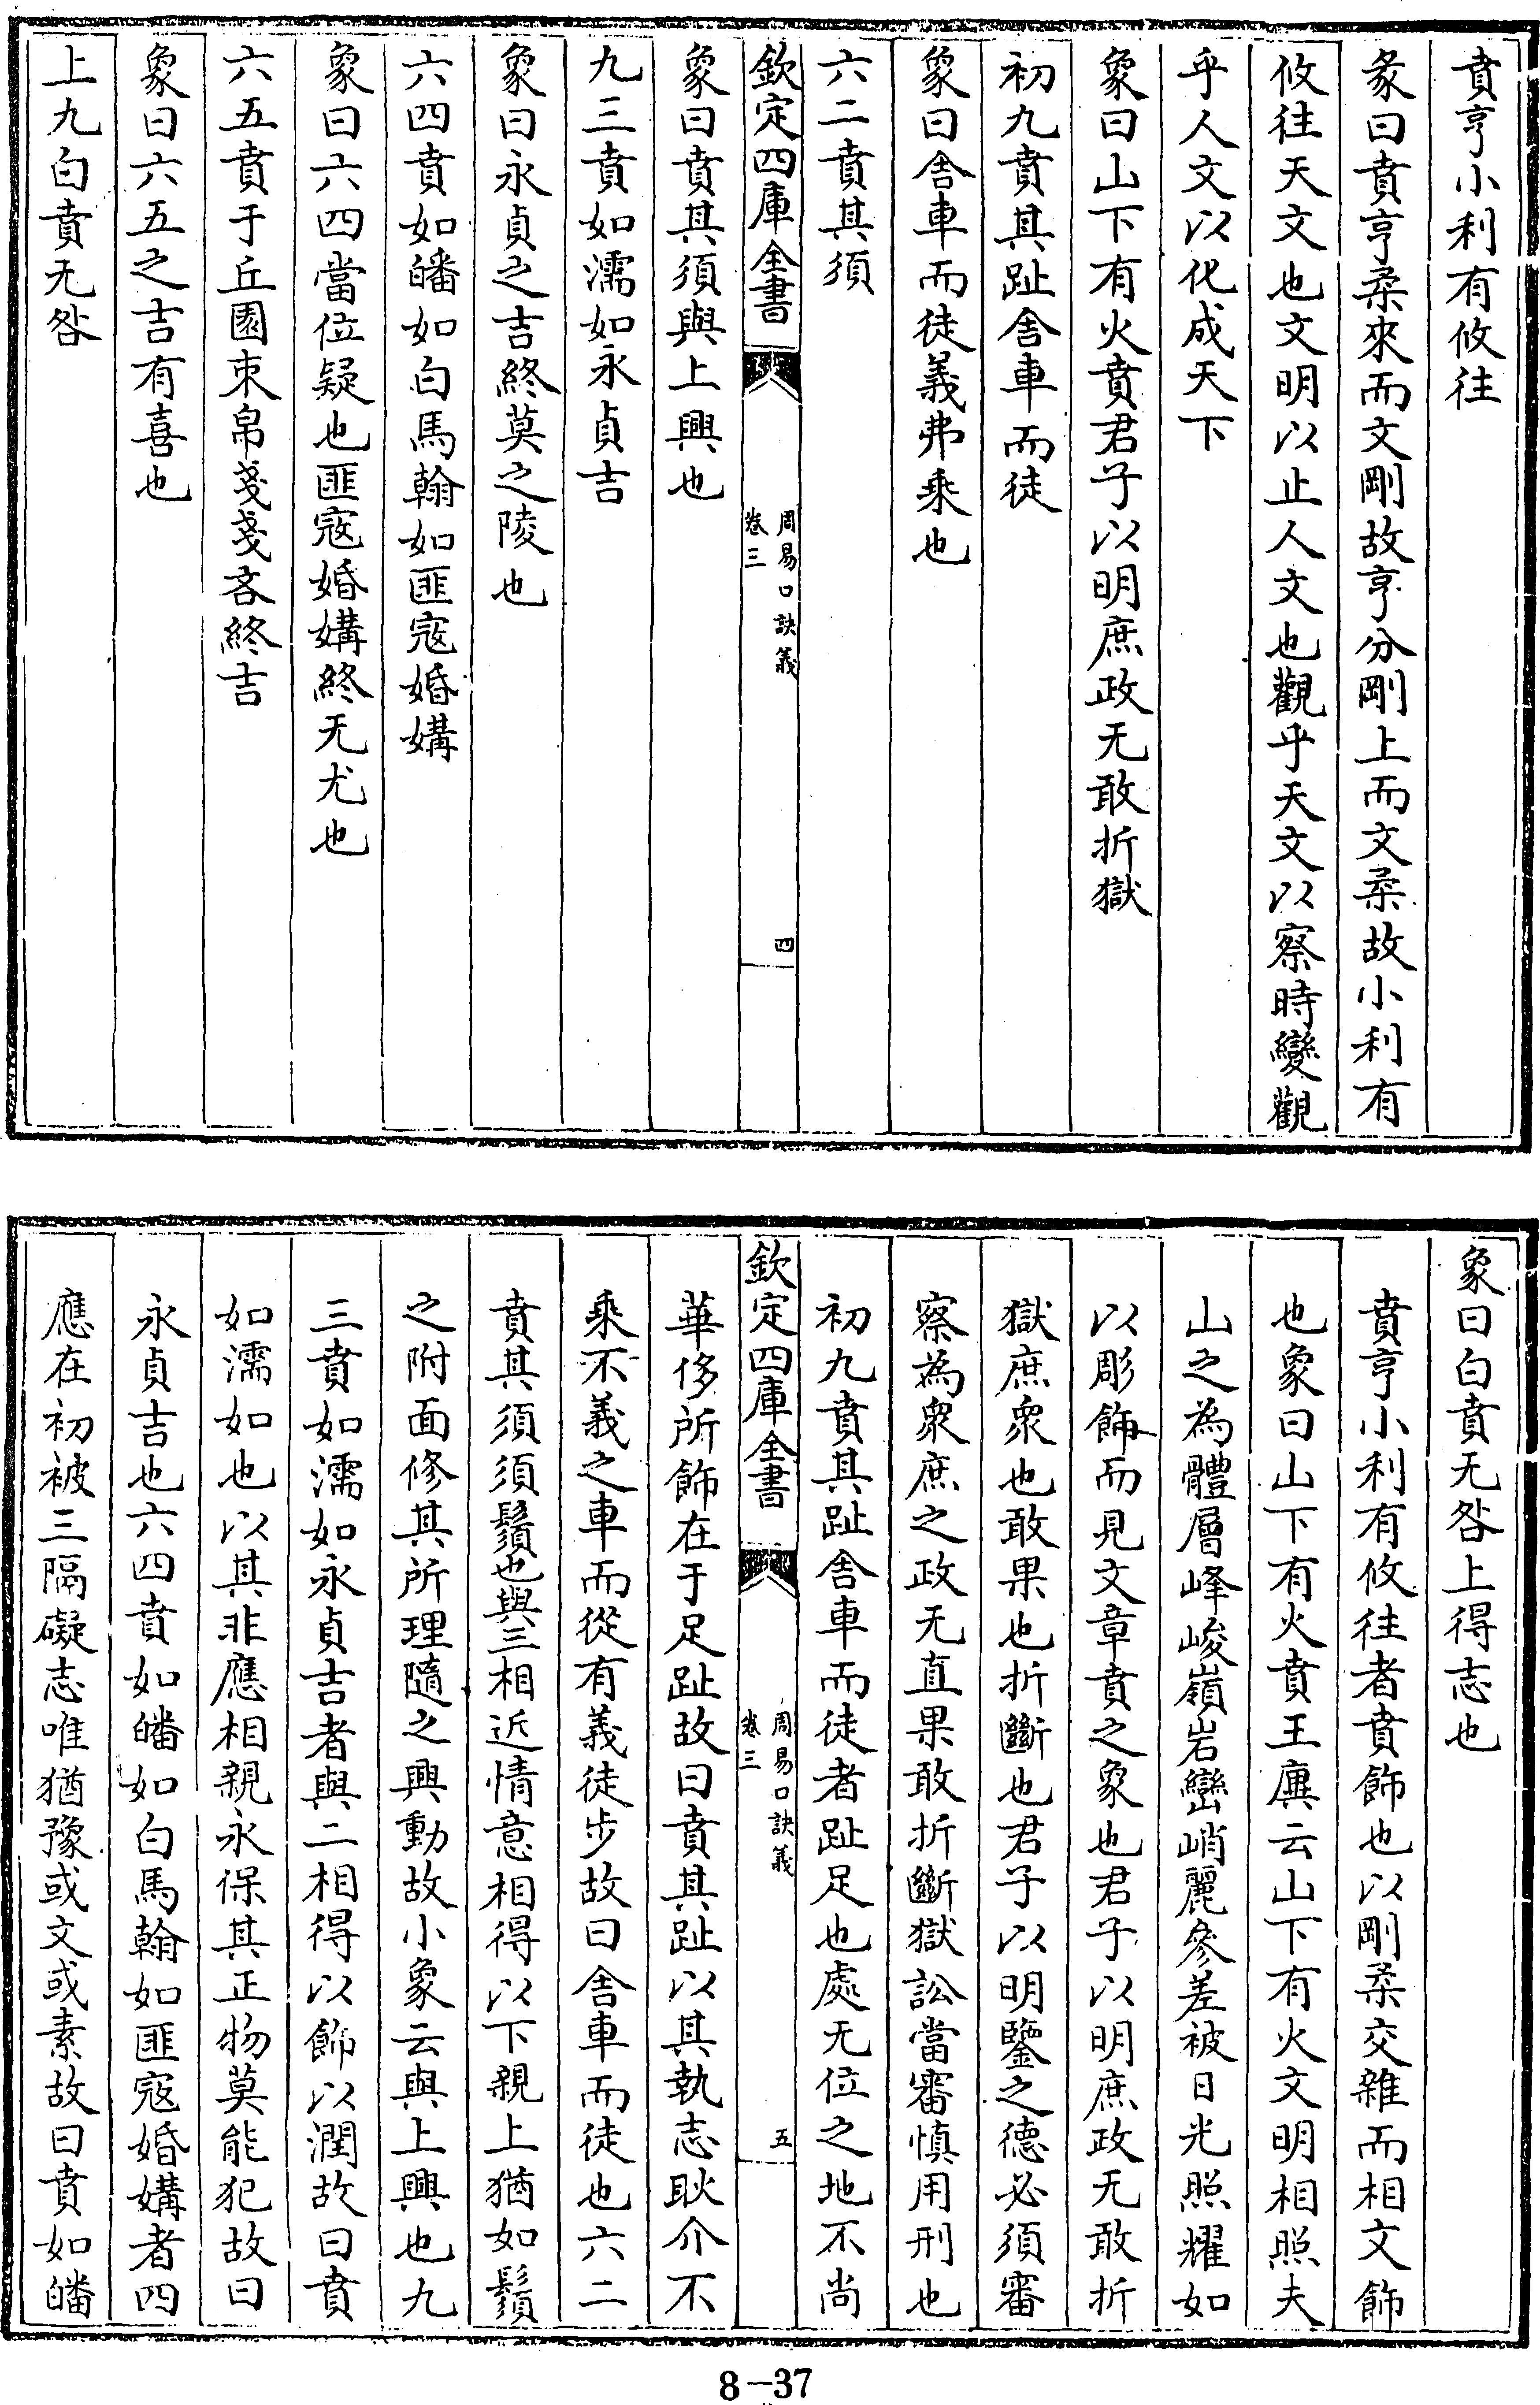 賁亨小利有攸往
彖曰賁亨柔來而文剛故亨分剛上而文柔故小利有
攸往天文也文明以止人文也觀乎天文以察時變觀
乎人文以化成天下
象曰山下有火賁君子以明庶政无敢折獄
初九賁其趾舍車而徒
象曰舍車而徒義弗乘也
六二賁其須
欽定四庫全書
周易口訣義
卷三
四
象曰賁其須與上興也
九三賁如濡如永貞吉
象曰永貞之吉終莫之陵也
六四賁如皤如白馬翰如匪寇婚媾
象曰六四當位疑也匪寇婚媾終无尤也
六五賁于丘園束帛戔戔吝終吉
象曰六五之吉有喜也
上九白賁无咎
象曰白賁无咎上得志也
賁亨小利有攸往者賁飾也以剛柔交雜而相文飾
也象曰山下有火賁王廙云山下有火文明相照夫
山之為體層峰峻嶺岩巒峭麗參差被日光照耀如
以彫飾而見文章賁之象也君子以明庶政无敢折
獄庶衆也敢果也折斷也君子以明鑒之德必須審
察為衆庶之政无直果敢折斷獄訟當審慎用刑也
初九賁其趾舍車而徒者趾足也處无位之地不尚
欽定四庫全書
周易口訣義
卷三
五
華侈所飾在于足趾故曰賁其趾以其執志耿介不
乘不義之車而從有義徒步故曰舍車而徒也六二
賁其須須鬚也與三相近情意相得以下親上猶如鬚
之附面修其所理隨之興動故小象云與上興也九
三賁如濡如永貞吉者與二相得以飾以潤故曰賁
如濡如也以其非應相親永保其正物莫能犯故曰
永貞吉也六四賁如皤如白馬翰如匪寇婚媾者四
應在初被三隔礙志唯猶豫或文或素故曰賁如皤
8-37